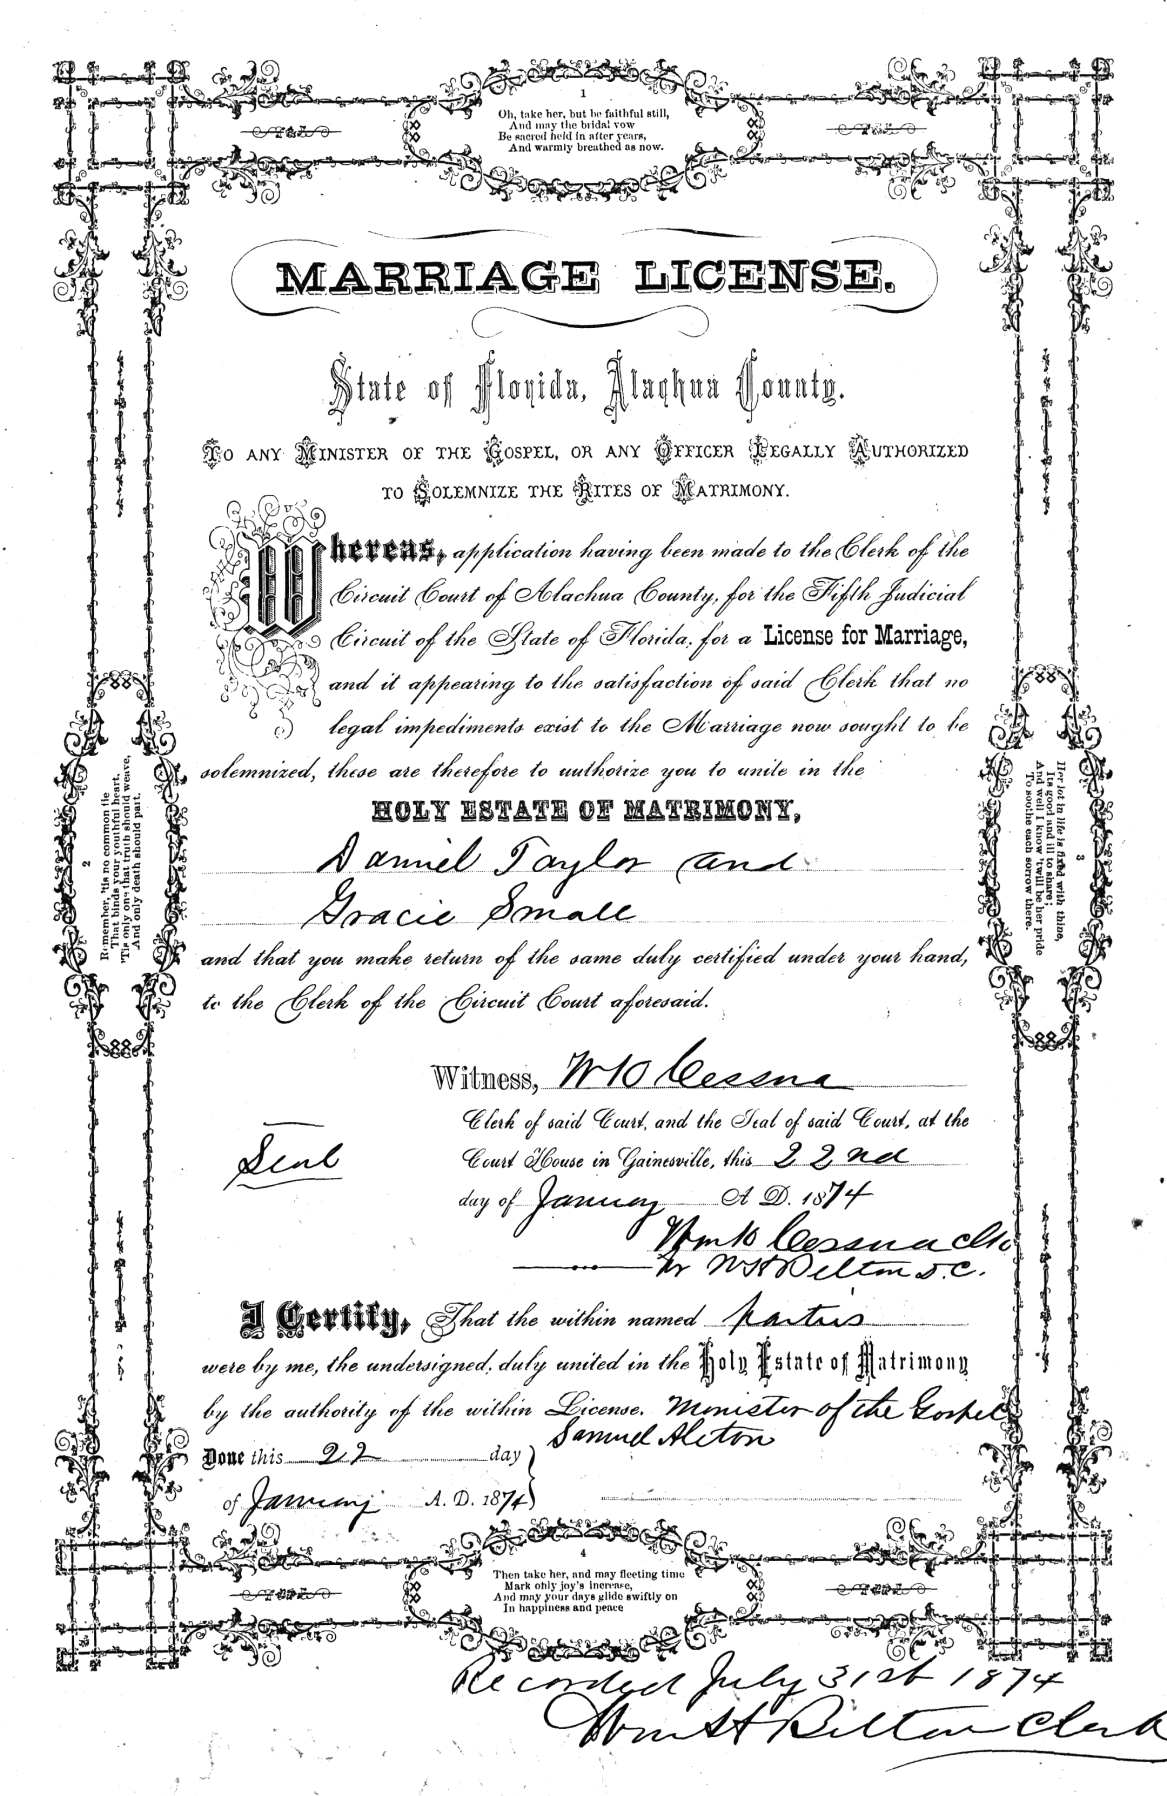 1
Oh, take her, but be faithful still,
And may the bridal vow
Be sacred held in after years,
And warmly breathed as now.
MARRIAGE LICENSE.
State of Florida, Alachua County.
TO ANY MINISTER OF THE GOSPEL, OR ANY OFFICER LEGALLY AUTHORIZED
TO SOLEMNIZE THE RITES OF MATRIMONY.
Whereas, application having been made to the Clerk of the
Circuit Court of Alachua County, for the Fifth Judicial
Circuit of the State of Florida, for a License for Marriage,
and it appearing to the satisfaction of said Clerk that no
legal impediments exist to the Marriage now sought to be
solemnized, these are therefore to authorize you to unite in the
HOLY ESTATE OF MATRIMONY,
Daniel Taylor and
Gracie Small
and that you make return of the same duly certified under your hand,
to the Clerk of the Circuit Court aforesaid.
2
Remember, 'tis no common tie
That binds your youthful heart,
'Tis only one that truth should weave,
And only death should part.
3
Her lot in life is fixed with thine,
Its good and ill to share;
And well I know 'twill be her pride
To soothe each sorrow there.
Witness, W K Cessna
Clerk of said Court, and the Seal of said Court, at the
Seal
Court House in Gainesville, this 22nd
day of January A. D. 1874
Wm K Cessna Clk
W H Belton D.C.
I Certify, That the within named parties
were by me, the undersigned, duly united in the Holy Estate of Matrimony
by the authority of the within License. Minister of the Gospel
Samuel
Done this 22 day
of January A. D. 1874
4
Then take her, and may fleeting time
Mark only joy's increase,
And may your days glide swiftly on
In happiness and peace
Recorded July 31st 1874
Wm H Belton Clerk